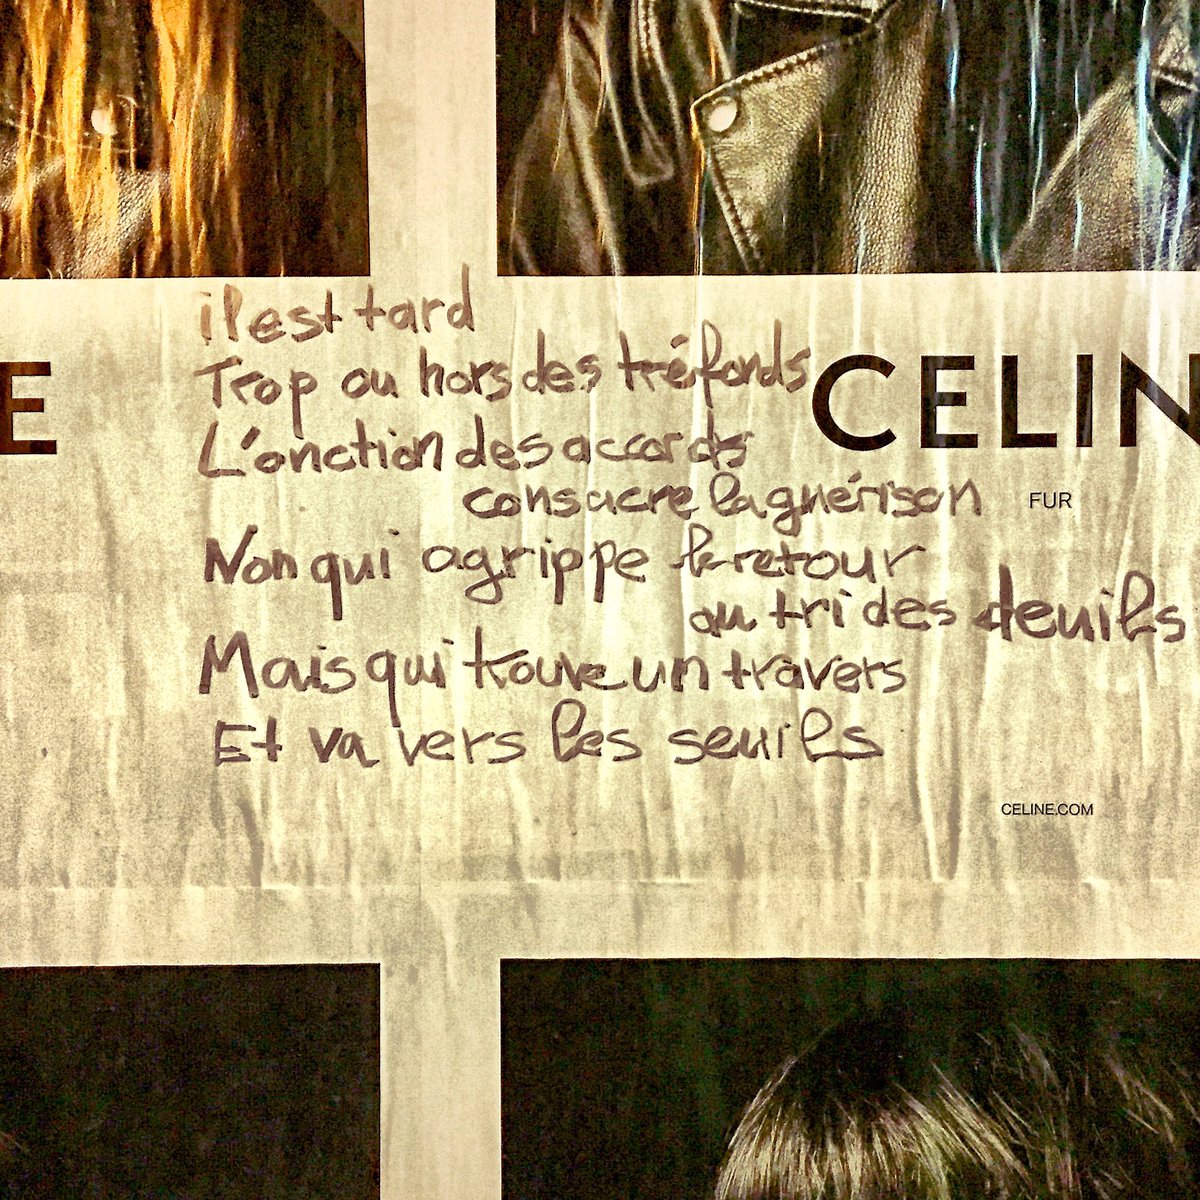 il est tard
Trop ou hors des tréfonds
E
CELIN
L'onction des accords
consacre la guérison
FUR
Non qui agrippe le retour
au tri des deuils
Mais qui trouve un travers
Et va vers les seuils
CELINE.COM